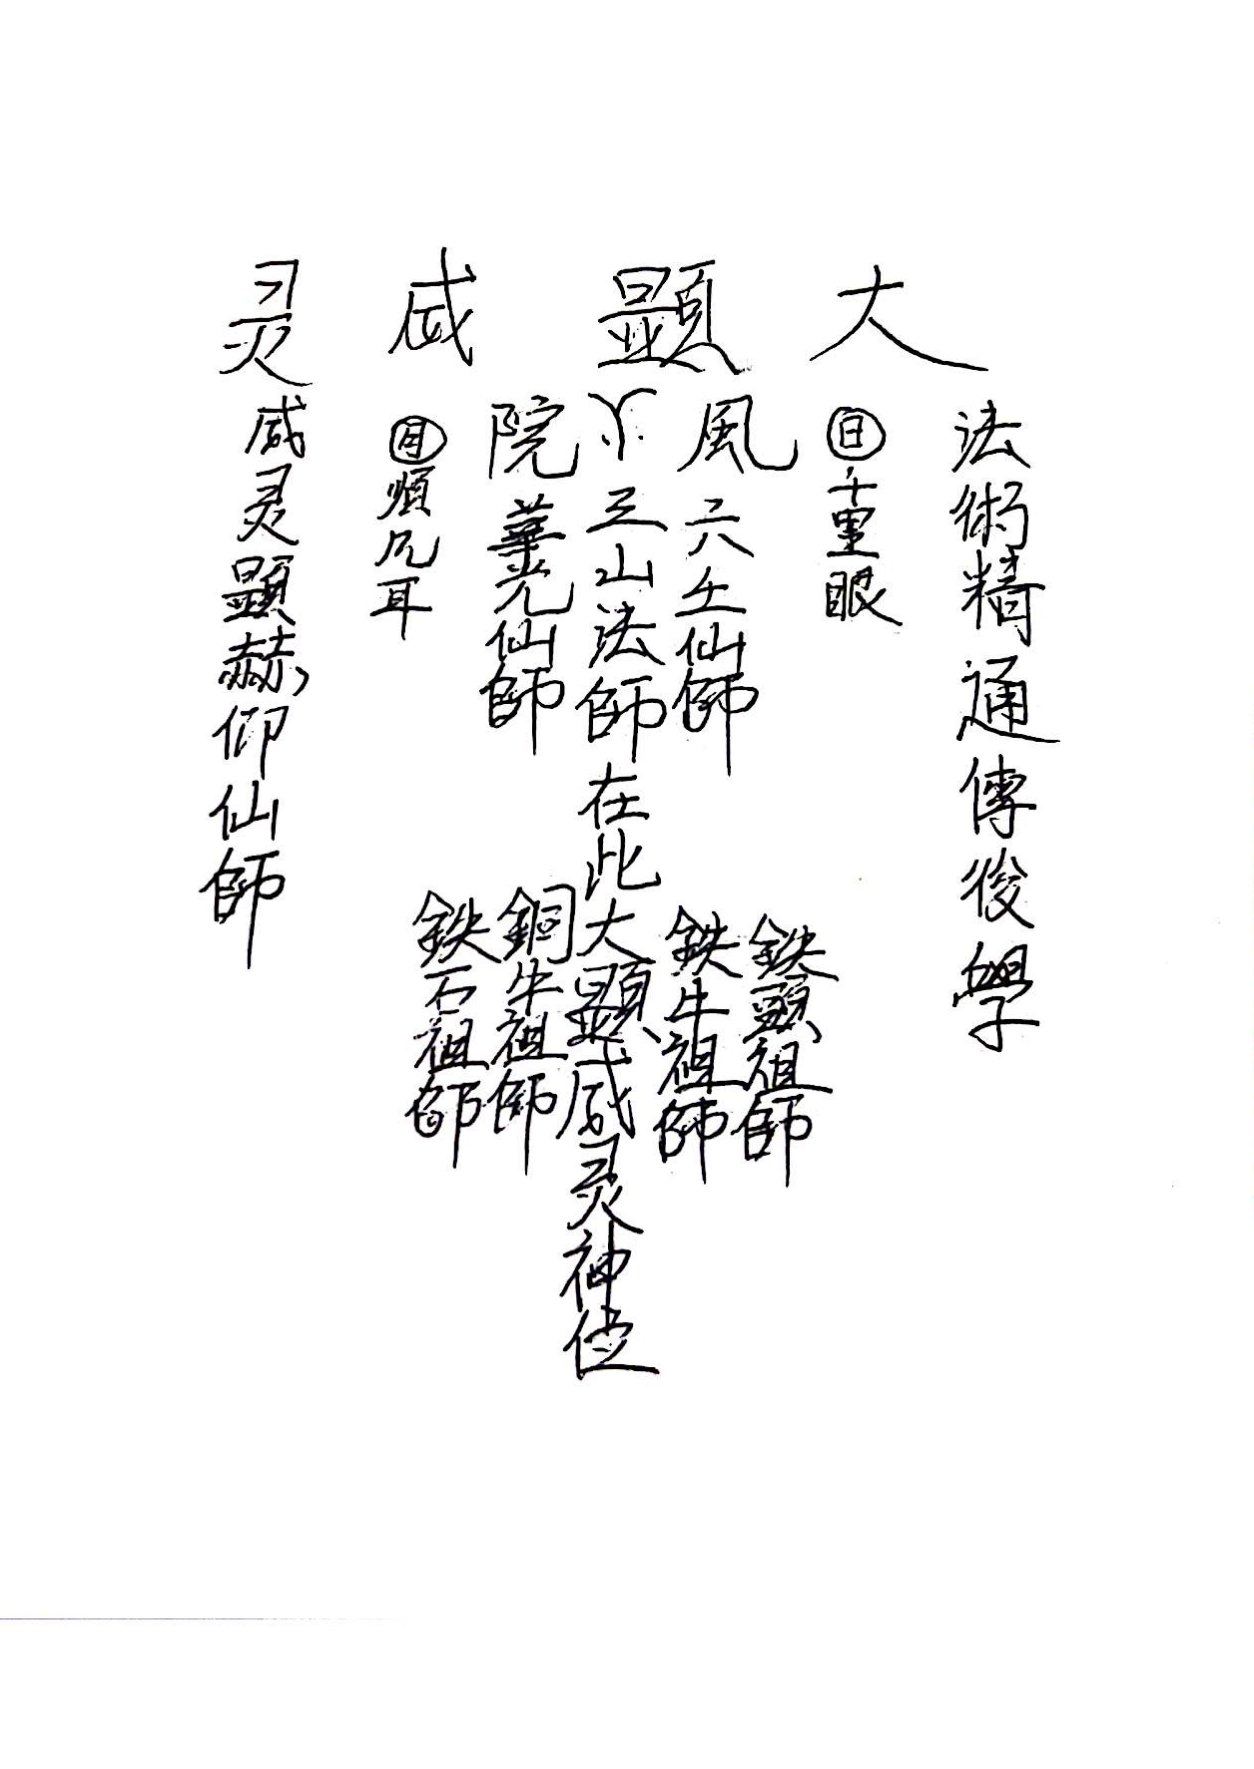 大顕威灵
法術精通傳後學
日 千里眼
風六壬仙師
三山法師在此大顕威灵神位
院華光仙師
月 順風耳
威灵顕赫仰仙師
鉄頭祖師
鉄牛祖師
銅牛祖師
鉄石祖師